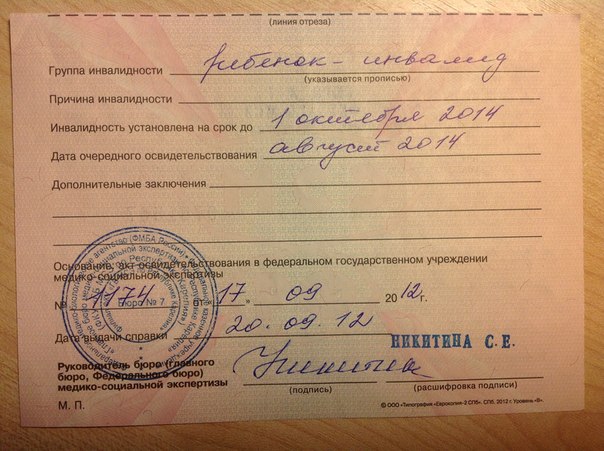 (линия отреза)
Группа инвалидности ребенок - инвалид
(указывается прописью)
Причина инвалидности
Инвалидность установлена на срок до 1 октября 2014
Дата очередного освидетельствования август 2014
Дополнительные заключения
Основание: акт освидетельствования в федеральном государственном учреждении
медико-социальной экспертизы
№ 1174 от « 17 » 09 2012 г.
Бюро № 7
Дата выдачи справки 20.09.12
НИКИТИНА С.Е.
Руководитель бюро (главного
бюро, Федерального бюро)
медико-социальной экспертизы
(подпись) (расшифровка подписи)
М. П.
© ООО «Типография «Еврокопия-2 СПб». СПб, 2012 г. Уровень «В».